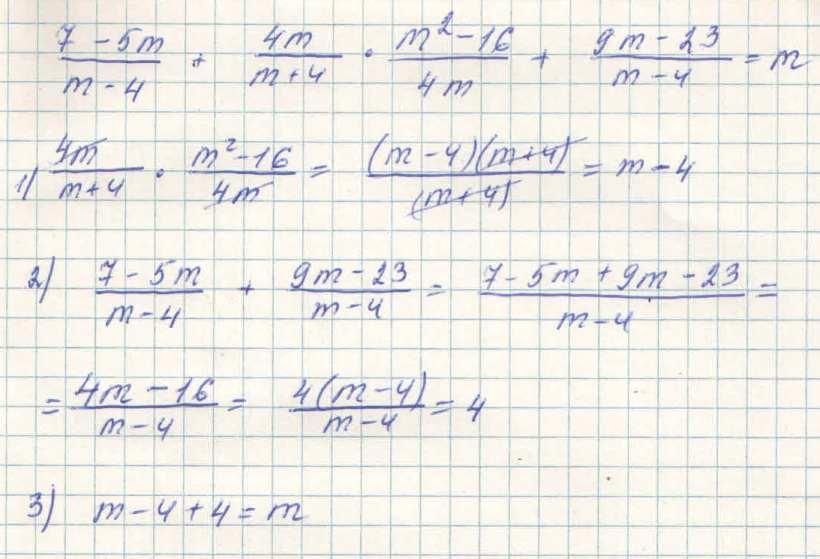 (7 - 5m)/(m - 4) + 4m/(m + 4) · (m² - 16)/(4m) + (9m - 23)/(m - 4) = m
1) 4m/(m + 4) · (m² - 16)/(4m) = ((m - 4)(m + 4))/((m + 4)) = m - 4
2) (7 - 5m)/(m - 4) + (9m - 23)/(m - 4) = (7 - 5m + 9m - 23)/(m - 4) =
= (4m - 16)/(m - 4) = 4(m - 4)/(m - 4) = 4
3) m - 4 + 4 = m